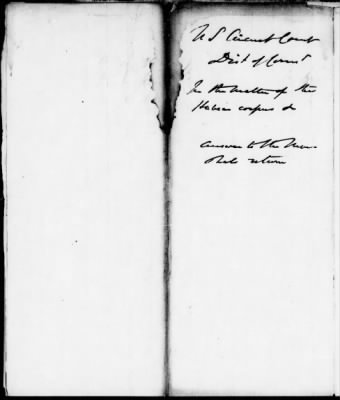 U S Circuit Court
Dist of Conn
In the matter of the
Habeas corpus &c
Answer to the Mar-
shals return